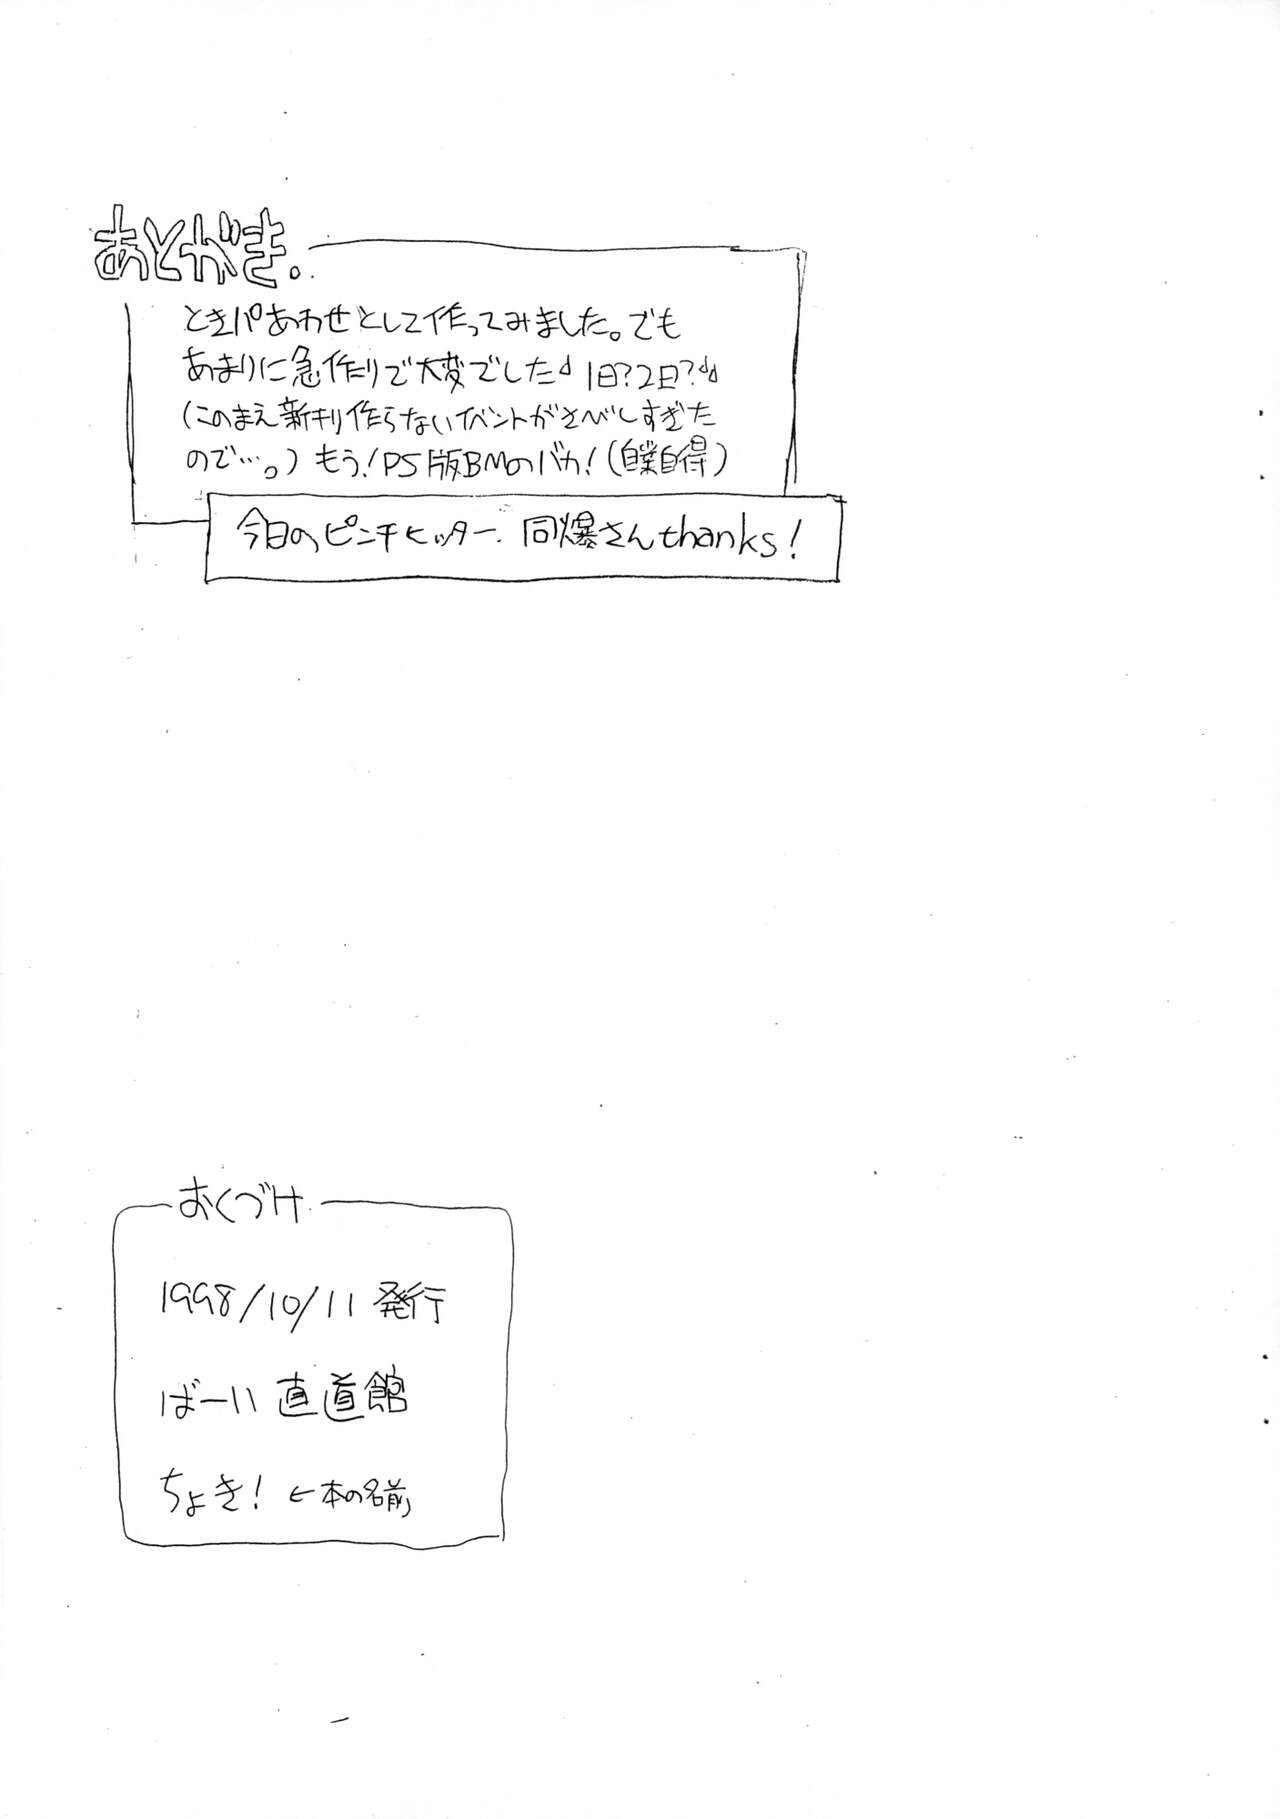 あとがき。
ときパあわせとして作ってみました。でも
あまりに急作りで大変でした 1日?2日?
(このまえ新刊作らないイベントがさびしすぎた
ので…。)もう!PS版BMのバカ!(自業自得)
今日のピンチヒッター. 同爆さんthanks!
おくづけ
1998/10/11 発行
ばーい 直道館
ちょき! ←本の名前